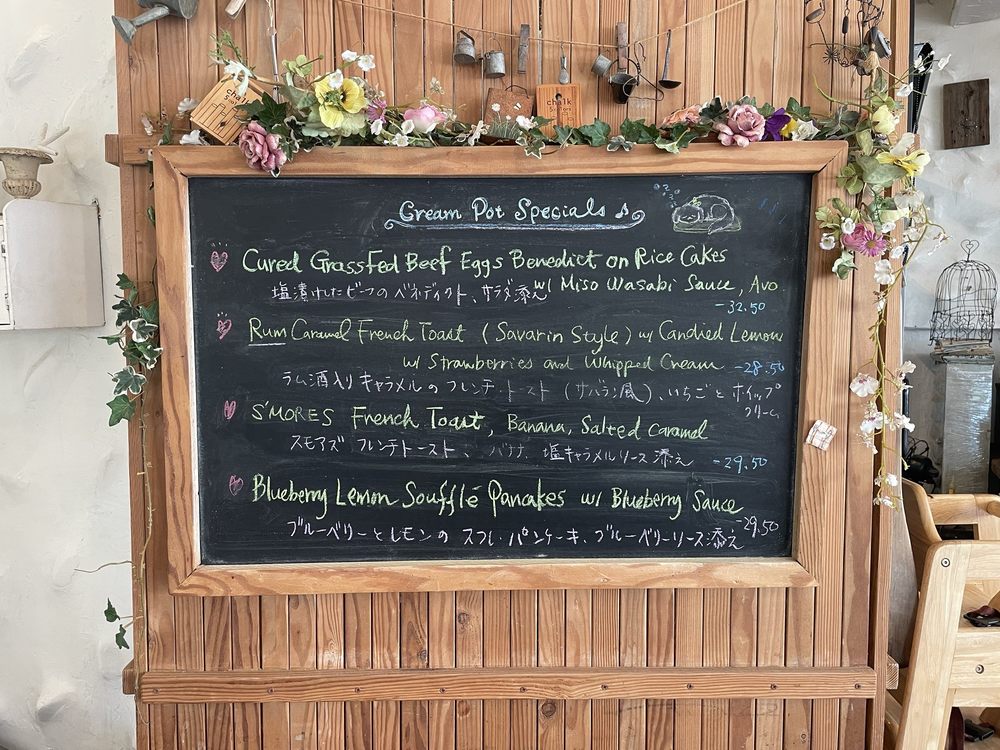 Cream Pot Specials ♪
Cured Grassfed Beef Eggs Benedict on Rice Cakes
塩漬けしたビーフのベネディクト、サラダ添え w/ Miso Wasabi Sauce, Avo
-32.50
Rum Caramel French Toast (Savarin Style) w/ Candied Lemon
w/ Strawberries and Whipped Cream -28.50
ラム酒入りキャラメルのフレンチ・トースト (サバラン風)、いちごとホイップ
クリーム
S'MORES French Toast, Banana, Salted Caramel
スモアズ フレンチトースト、バナナ、塩キャラメルソース添え -29.50
Blueberry Lemon Soufflé Pancakes w/ Blueberry Sauce
-29.50
ブルーベリーとレモンの スフレ・パンケーキ、ブルーベリーソース添え
chalk
chalk